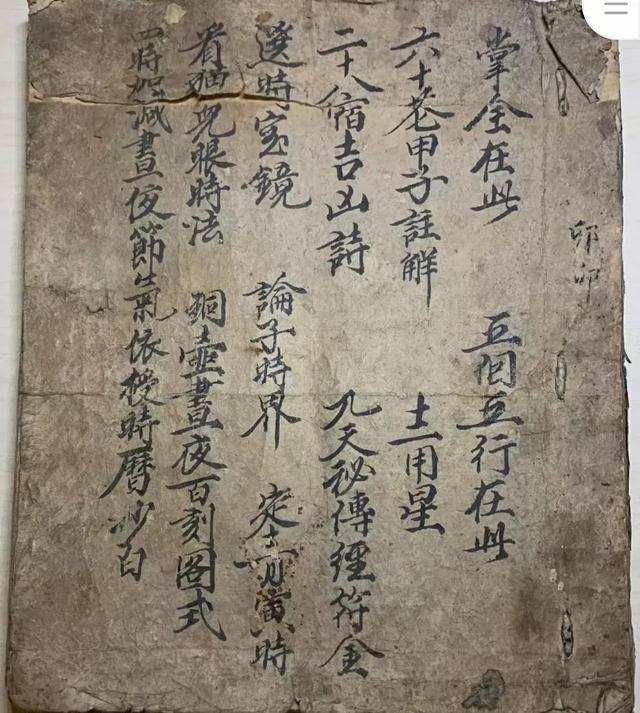 卯卯
掌全在此 五個五行在此
六十花甲子註解 土用星
二十八宿吉凶詩 九天秘傳經符金
選時宝鏡 論子時界 定十二月寅時
看猫兒眼時法 銅壺晝夜百刻圖式
四時加減晝夜節氣依授時曆抄白